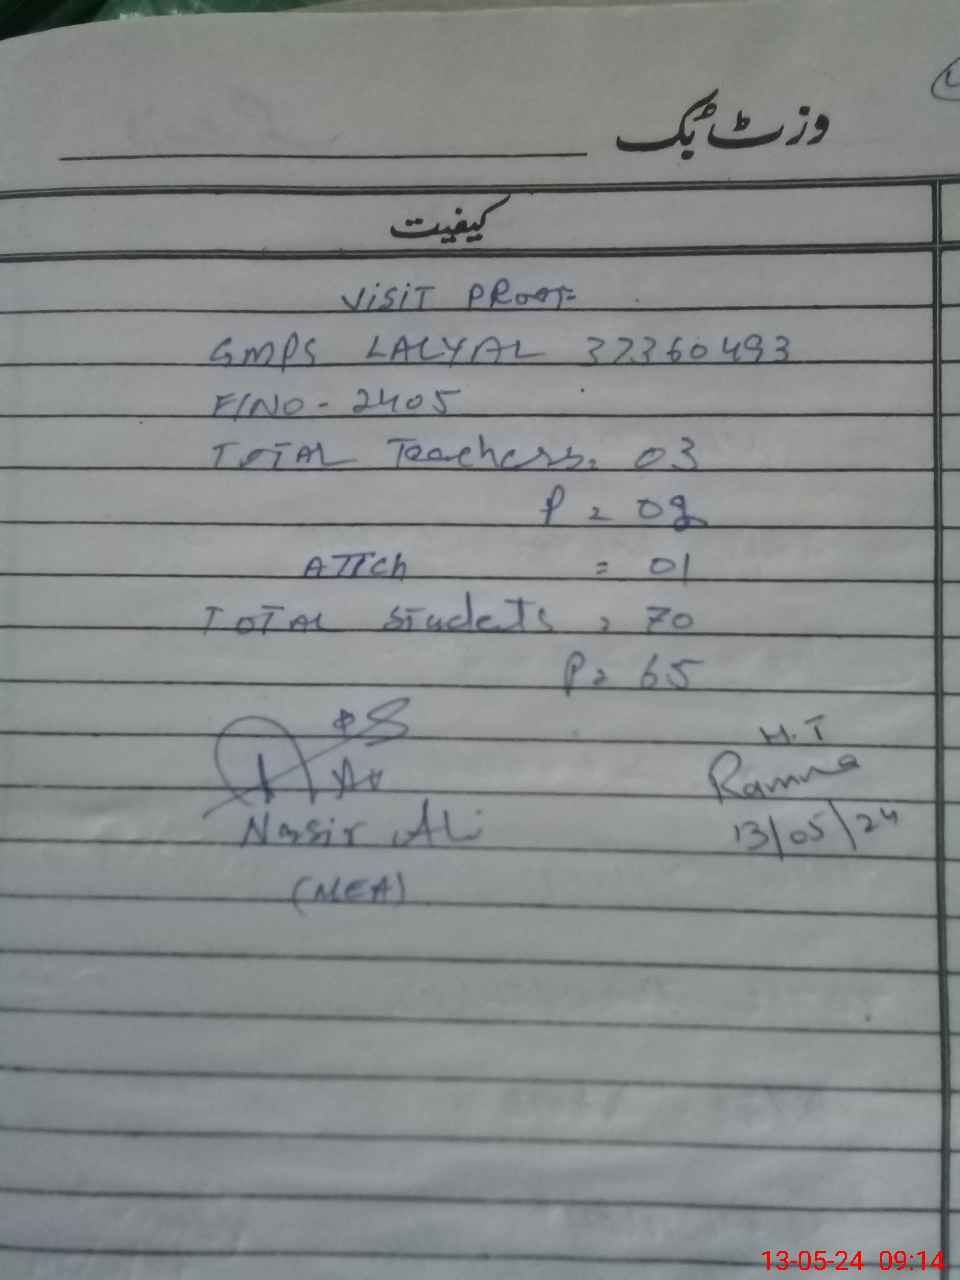 وزٹ بک
کیفیت
VISIT PROOF
GMPS LALYAL 37360493
F/NO - 2405
TOTAL Teachers = 03
P = 02
ATTCH = 01
TOTAL Students = 70
P = 65
H.T
Ramna
Nasir Ali
13/05/24
(MEA)
13-05-24 09:14